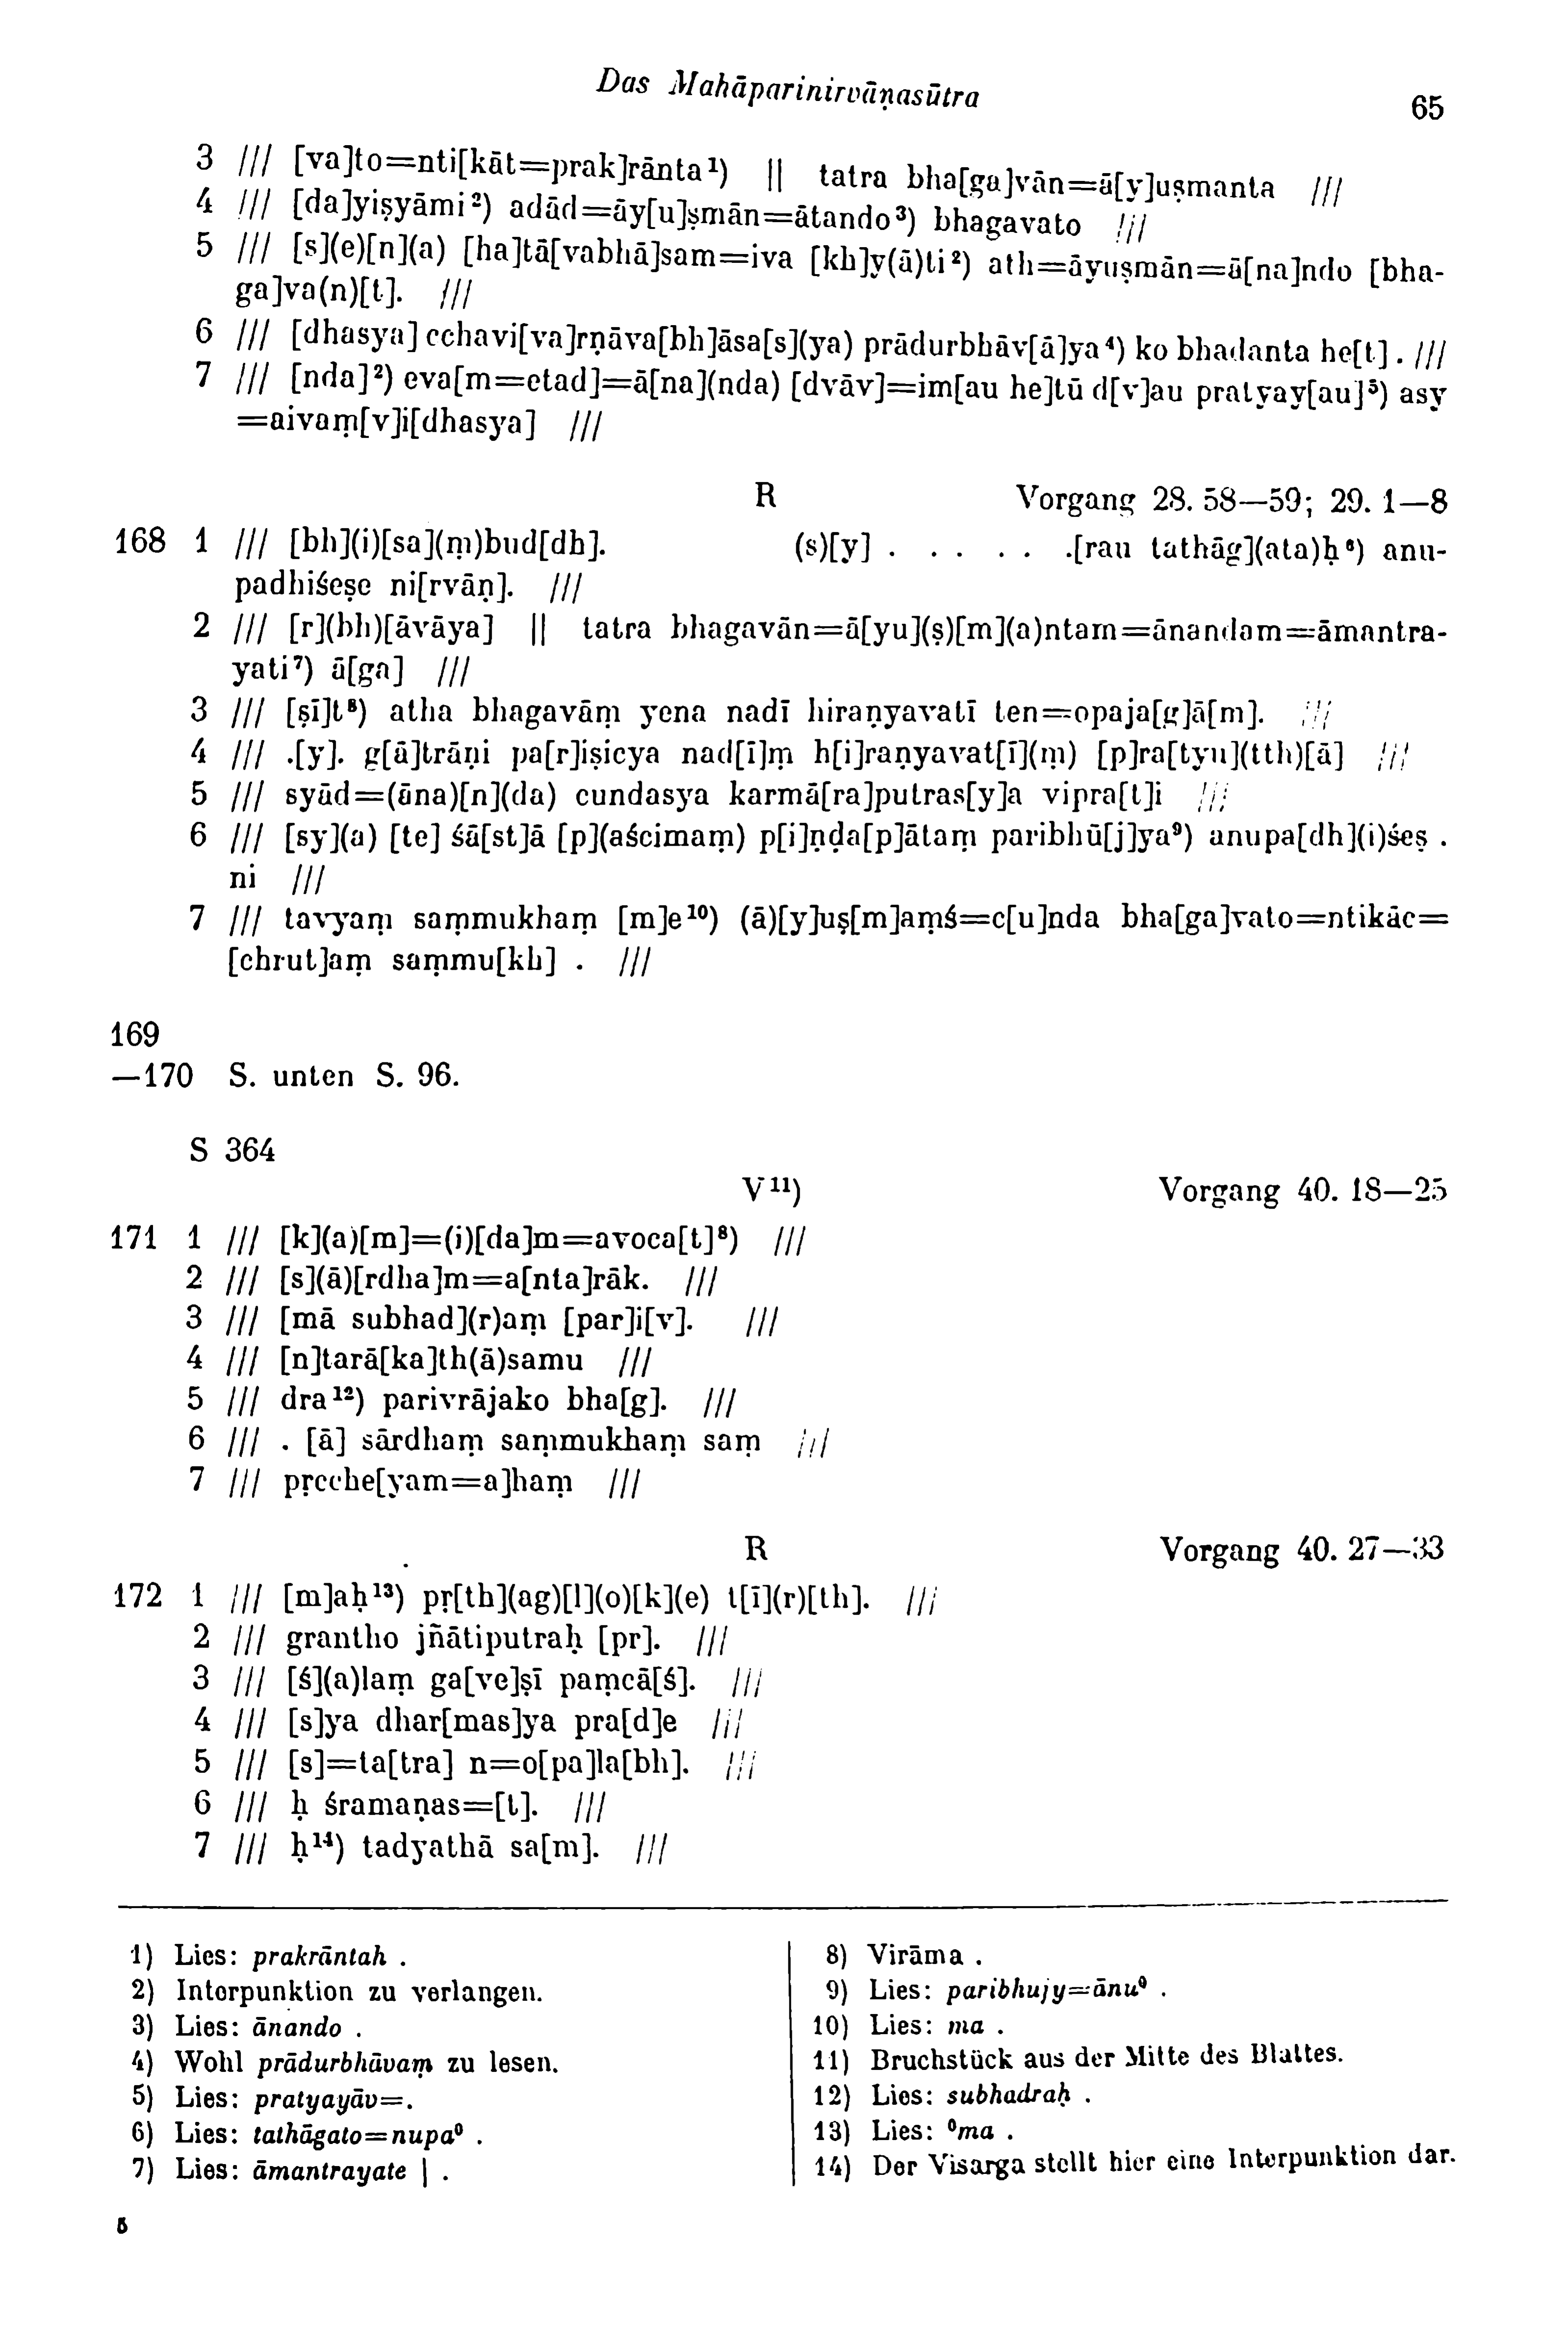 Das Mahāparinirvāṇasūtra
65
3 /// [va]to=nti[kāt=prak]rānta¹) || tatra bha[ga]vān=ā[y]uṣmanta ///
4 /// [da]yiṣyāmi²) adād=āy[u]ṣmān=ātando³) bhagavato ///
5 /// [s](e)[n](a) [ha]tā[vabhā]sam=iva [kh]y(ā)ti²) ath=āyuṣmān=ā[na]ndo [bha-
ga]va(n)[t]. ///
6 /// [dhasya] cchavi[va]rṇāva[bh]āsa[s](ya) prādurbhāv[ā]ya⁴) ko bhadanta he[t] . ///
7 /// [nda]²) eva[m=etad]=ā[na](nda) [dvāv]=im[au he]tū d[v]au pratyay[au]⁵) asy
=aivaṃ[v]i[dhasya] ///
R Vorgang 28. 58—59; 29. 1—8
168 1 /// [bh](i)[sa](ṃ)bud[dh]. (s)[y] . . . . . .[rau tathāg](ata)ḥ⁶) anu-
padhiśeṣe ni[rvāṇ]. ///
2 /// [r](bh)[āvāya] || tatra bhagavān=ā[yu](ṣ)[m](a)ntam=ānandam=āmantra-
yati⁷) ā[ga] ///
3 /// [ṣī]t⁸) atha bhagavāṃ yena nadī hiraṇyavatī ten=opaja[g]ā[m]. ///
4 /// .[y]. g[ā]trāṇi pa[r]iṣicya nad[ī]ṃ h[i]raṇyavat[ī](ṃ) [p]ra[tyu](tth)[ā] ///
5 /// syād=(āna)[n](da) cundasya karmā[ra]putras[y]a vipra[t]i ///
6 /// [sy](a) [te] śā[st]ā [p](aścimaṃ) p[i]ṇḍa[p]ātaṃ paribhū[j]ya⁹) anupa[dh](i)śeṣ .
ni ///
7 /// tavyaṃ saṃmukhaṃ [m]e¹⁰) (ā)[y]uṣ[m]aṃś=c[u]nda bha[ga]vato=ntikāc=
[chrut]aṃ saṃmu[kh] . ///
169
—170 S. unten S. 96.
S 364
V¹¹) Vorgang 40. 18—25
171 1 /// [k](a)[m]=(i)[da]m=avoca[t]⁸) ///
2 /// [s](ā)[rdha]m=a[nta]rāk. ///
3 /// [mā subhad](r)aṃ [par]i[v]. ///
4 /// [n]tarā[ka]th(ā)samu ///
5 /// dra¹²) parivrājako bha[g]. ///
6 /// . [ā] sārdhaṃ saṃmukhaṃ saṃ ///
7 /// pṛcche[yam=a]haṃ ///
R Vorgang 40. 27—33
172 1 /// [m]aḥ¹³) pṛ[th](ag)[l](o)[k](e) t[ī](r)[th]. ///
2 /// grantho jñātiputraḥ [pr]. ///
3 /// [ś](a)laṃ ga[ve]ṣī paṃcā[ś]. ///
4 /// [s]ya dhar[mas]ya pra[d]e ///
5 /// [s]=ta[tra] n=o[pa]la[bh]. ///
6 /// ḥ śramaṇas=[t]. ///
7 /// ḥ¹⁴) tadyathā sa[m]. ///
1) Lies: prakrāntah .
2) Interpunktion zu verlangen.
3) Lies: ānando .
4) Wohl prādurbhāvaṃ zu lesen.
5) Lies: pratyayāv=.
6) Lies: tathāgato=nupa⁰ .
7) Lies: āmantrayate | .
8) Virāma .
9) Lies: paribhujy=ānu⁰ .
10) Lies: ma .
11) Bruchstück aus der Mitte des Blattes.
12) Lies: subhadraḥ .
13) Lies: ⁰ma .
14) Der Visarga stellt hier eine Interpunktion dar.
5